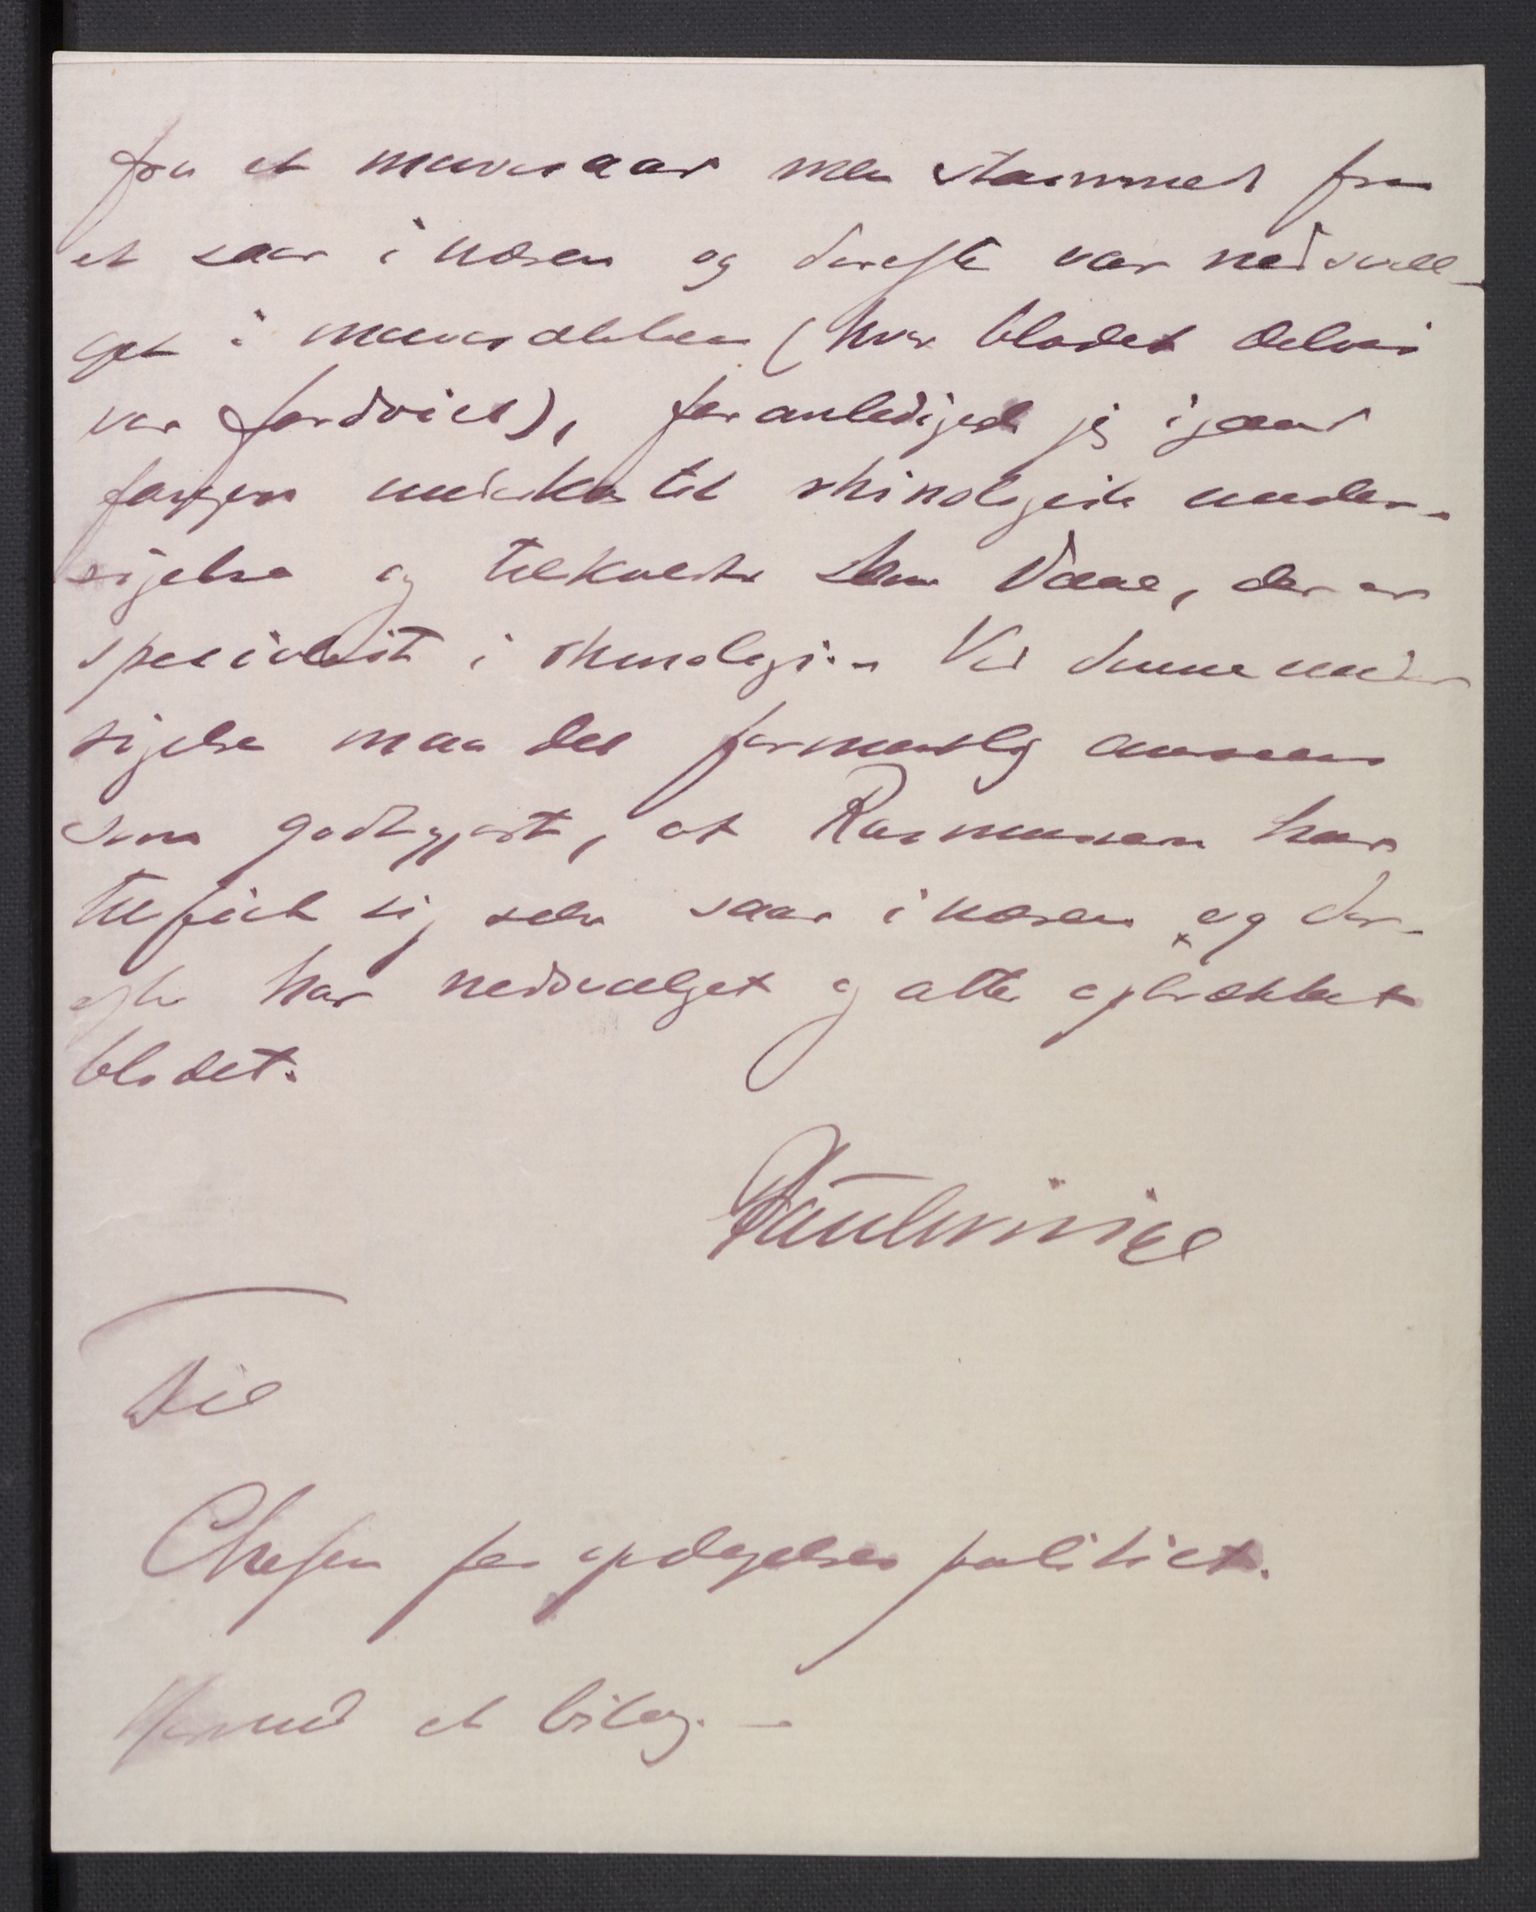 fra et mavesaar men stammet fra
et saar i næsen og derefter var nedsvæl-
get i mavesækken (hvor blodet delvis
var fordøiet), foranledigede jeg igaar
fangen underkastet rhinologisk under-
søgelse og tilkaldte læge, der er
specialist i rhinologi. – Ved denne under
søgelse maa det formentlig ansees
som godtgjort, at Rasmussen har
tilføiet sig selv saar i næsen og der-
efter har nedsvælget og atter opbrækket
blodet.
Til
Chefen for opdagelsespolitiet.
Hermed et bilag. –